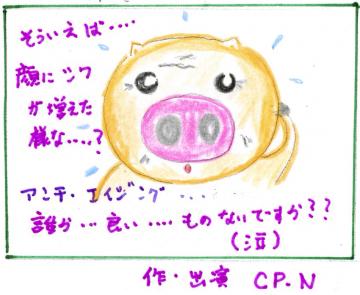 そういえば‥‥
顔にシワ
が増えた
様な‥‥?
アンチ・エイジング‥‥
誰か‥良い‥‥ものないですか??
(泣)
作・出演 CP.N